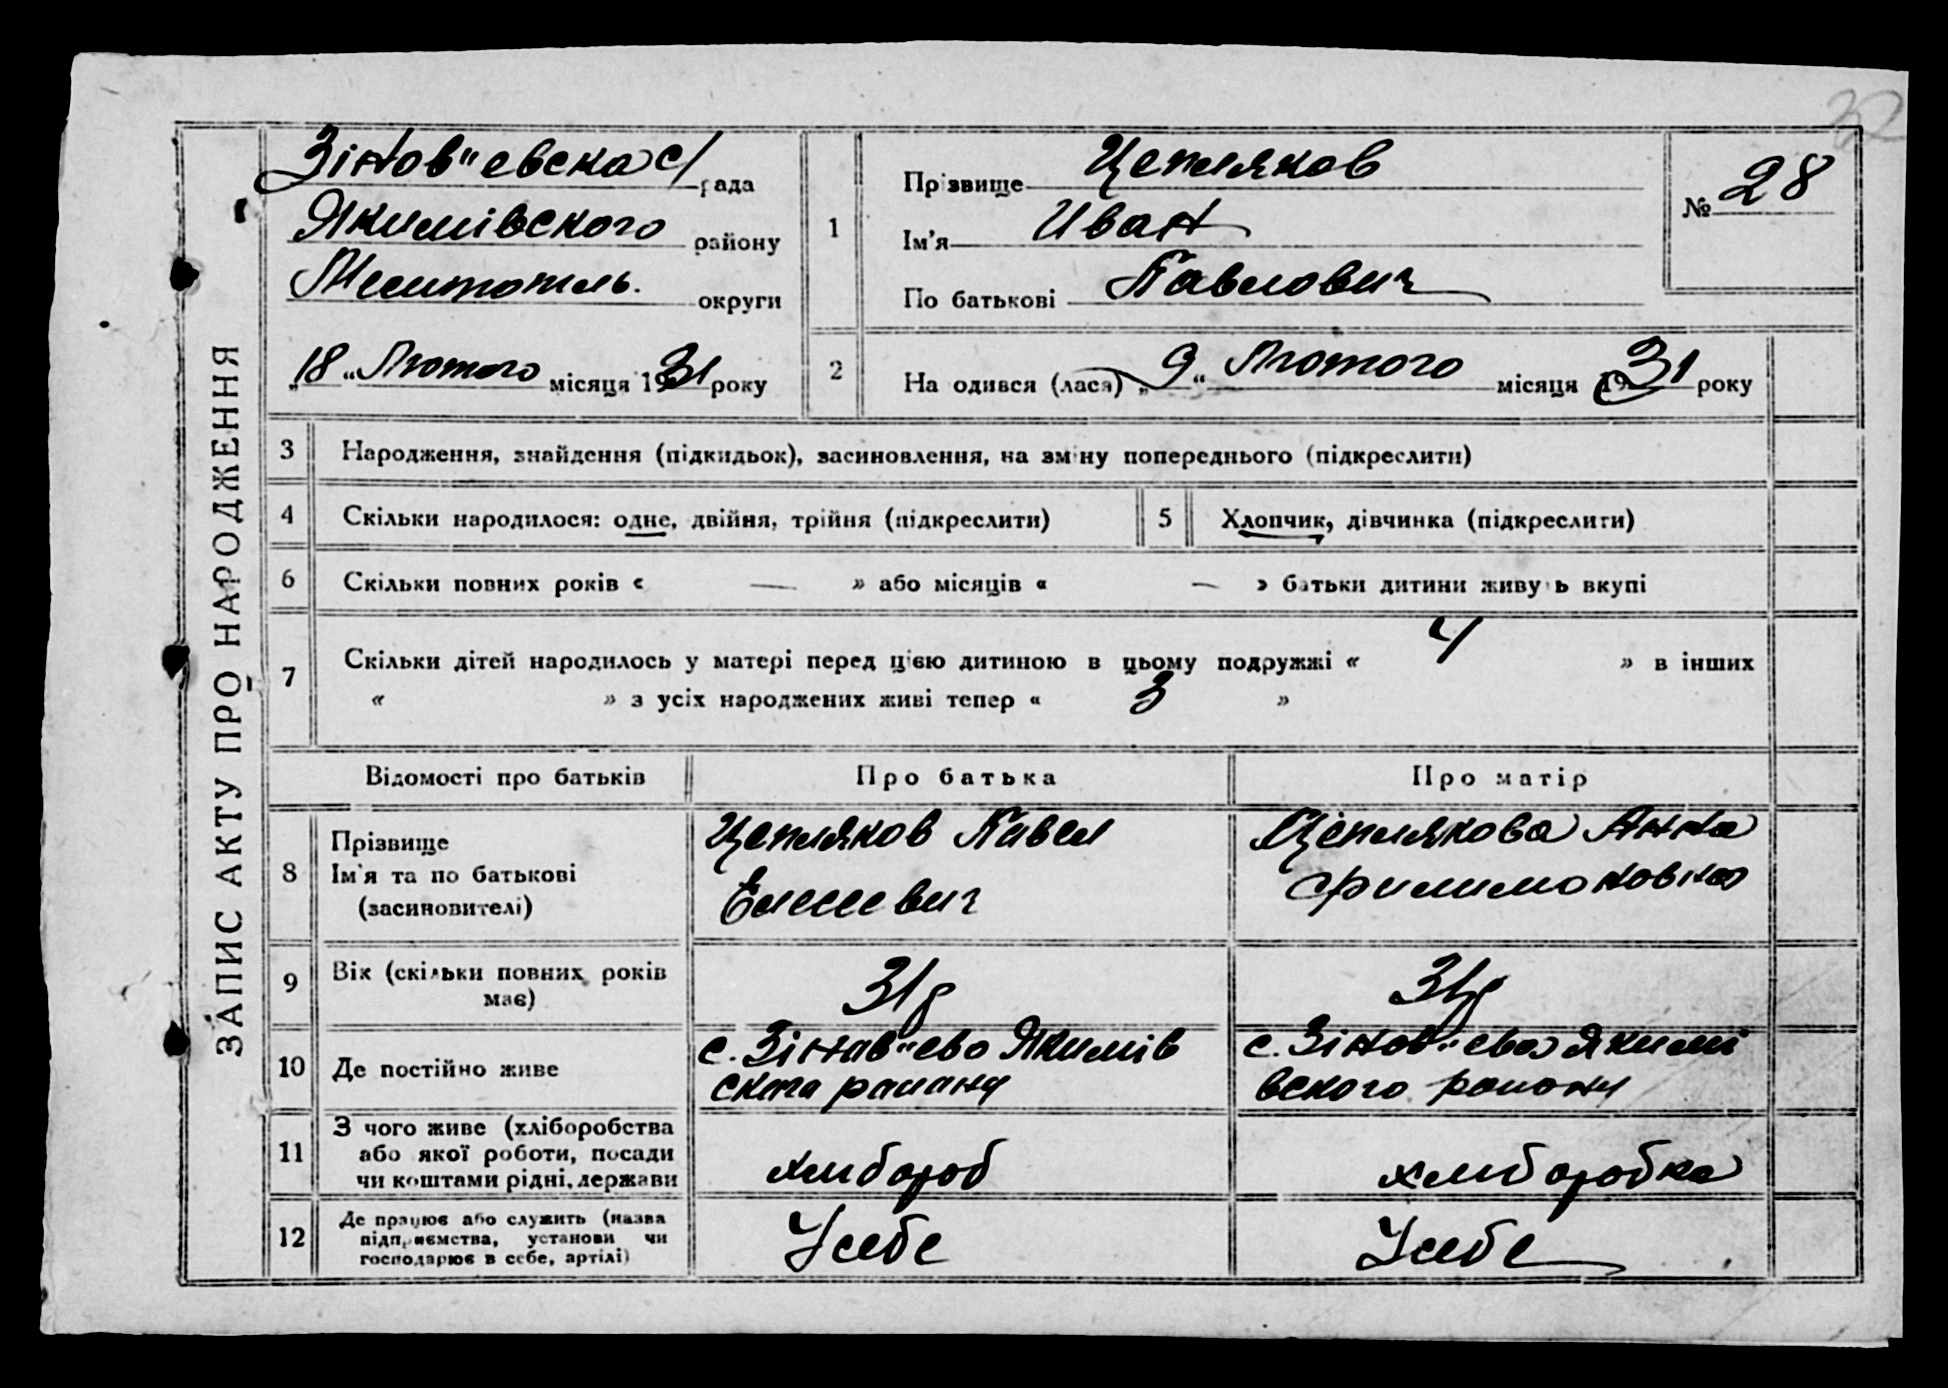 32
ЗАПИС АКТУ ПРО НАРОДЖЕННЯ
Зінов"евска с/рада
Якимівского району
Мелитополь. округи
„18“ Лютого місяця 1931 року
1
Прізвище Цепляков
Ім'я Иван
По батькові Павлович
№ 28
2
На одився (лася) „9“ Лютого місяця 1931 року
3 Народження, знайдення (підкидьок), засиновлення, на зміну попереднього (підкреслити)
4 Скільки народилося: одне, двійня, трійня (підкреслити) 5 Хлопчик, дівчинка (підкреслити)
6 Скільки повних років « — » або місяців « — » батьки дитини живуть вкупі
7 Скільки дітей народилось у матері перед цією дитиною в цьому подружжі « 4 » в інших
« » з усіх народжених живі тепер « 3 »
Відомості про батьків Про батька Про матір
8 Прізвище
Ім'я та по батькові
(засиновителі)
Цепляков Павел
Елисеевич
Цеплякова Анна
Филимоновна
9 Вік (скільки повних років
має)
31 р
31 р
10 Де постійно живе
с. Зінов"ево Якимів
ского району
с. Зінов"ева Якимі
вского району
11 З чого живе (хліборобства
або якої роботи, посади
чи коштами рідні, держави
хлибороб
хлиборобка
12 Де працює або служить (назва
підприємства, установи чи
господарює в себе, артілі)
У себе
У себе